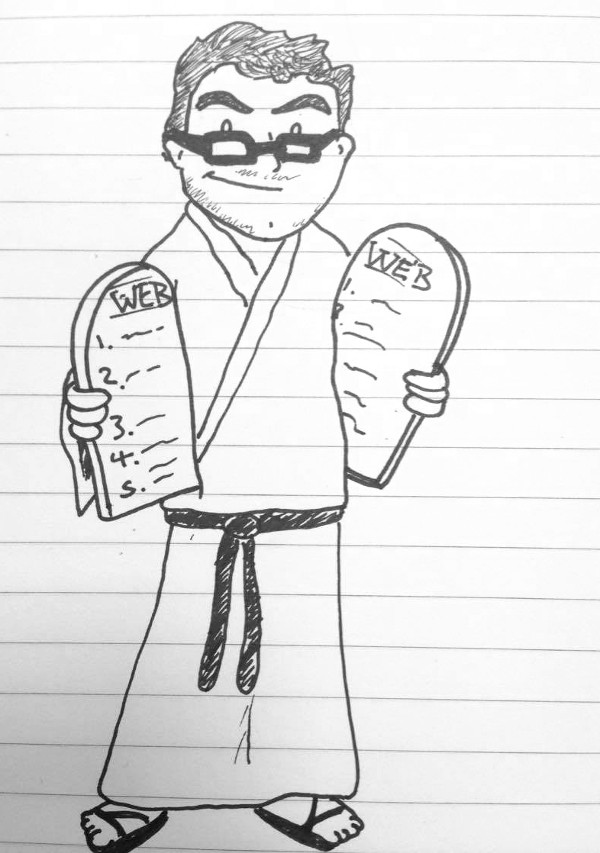 WEB
1.
2.
3.
4.
5.
WEB